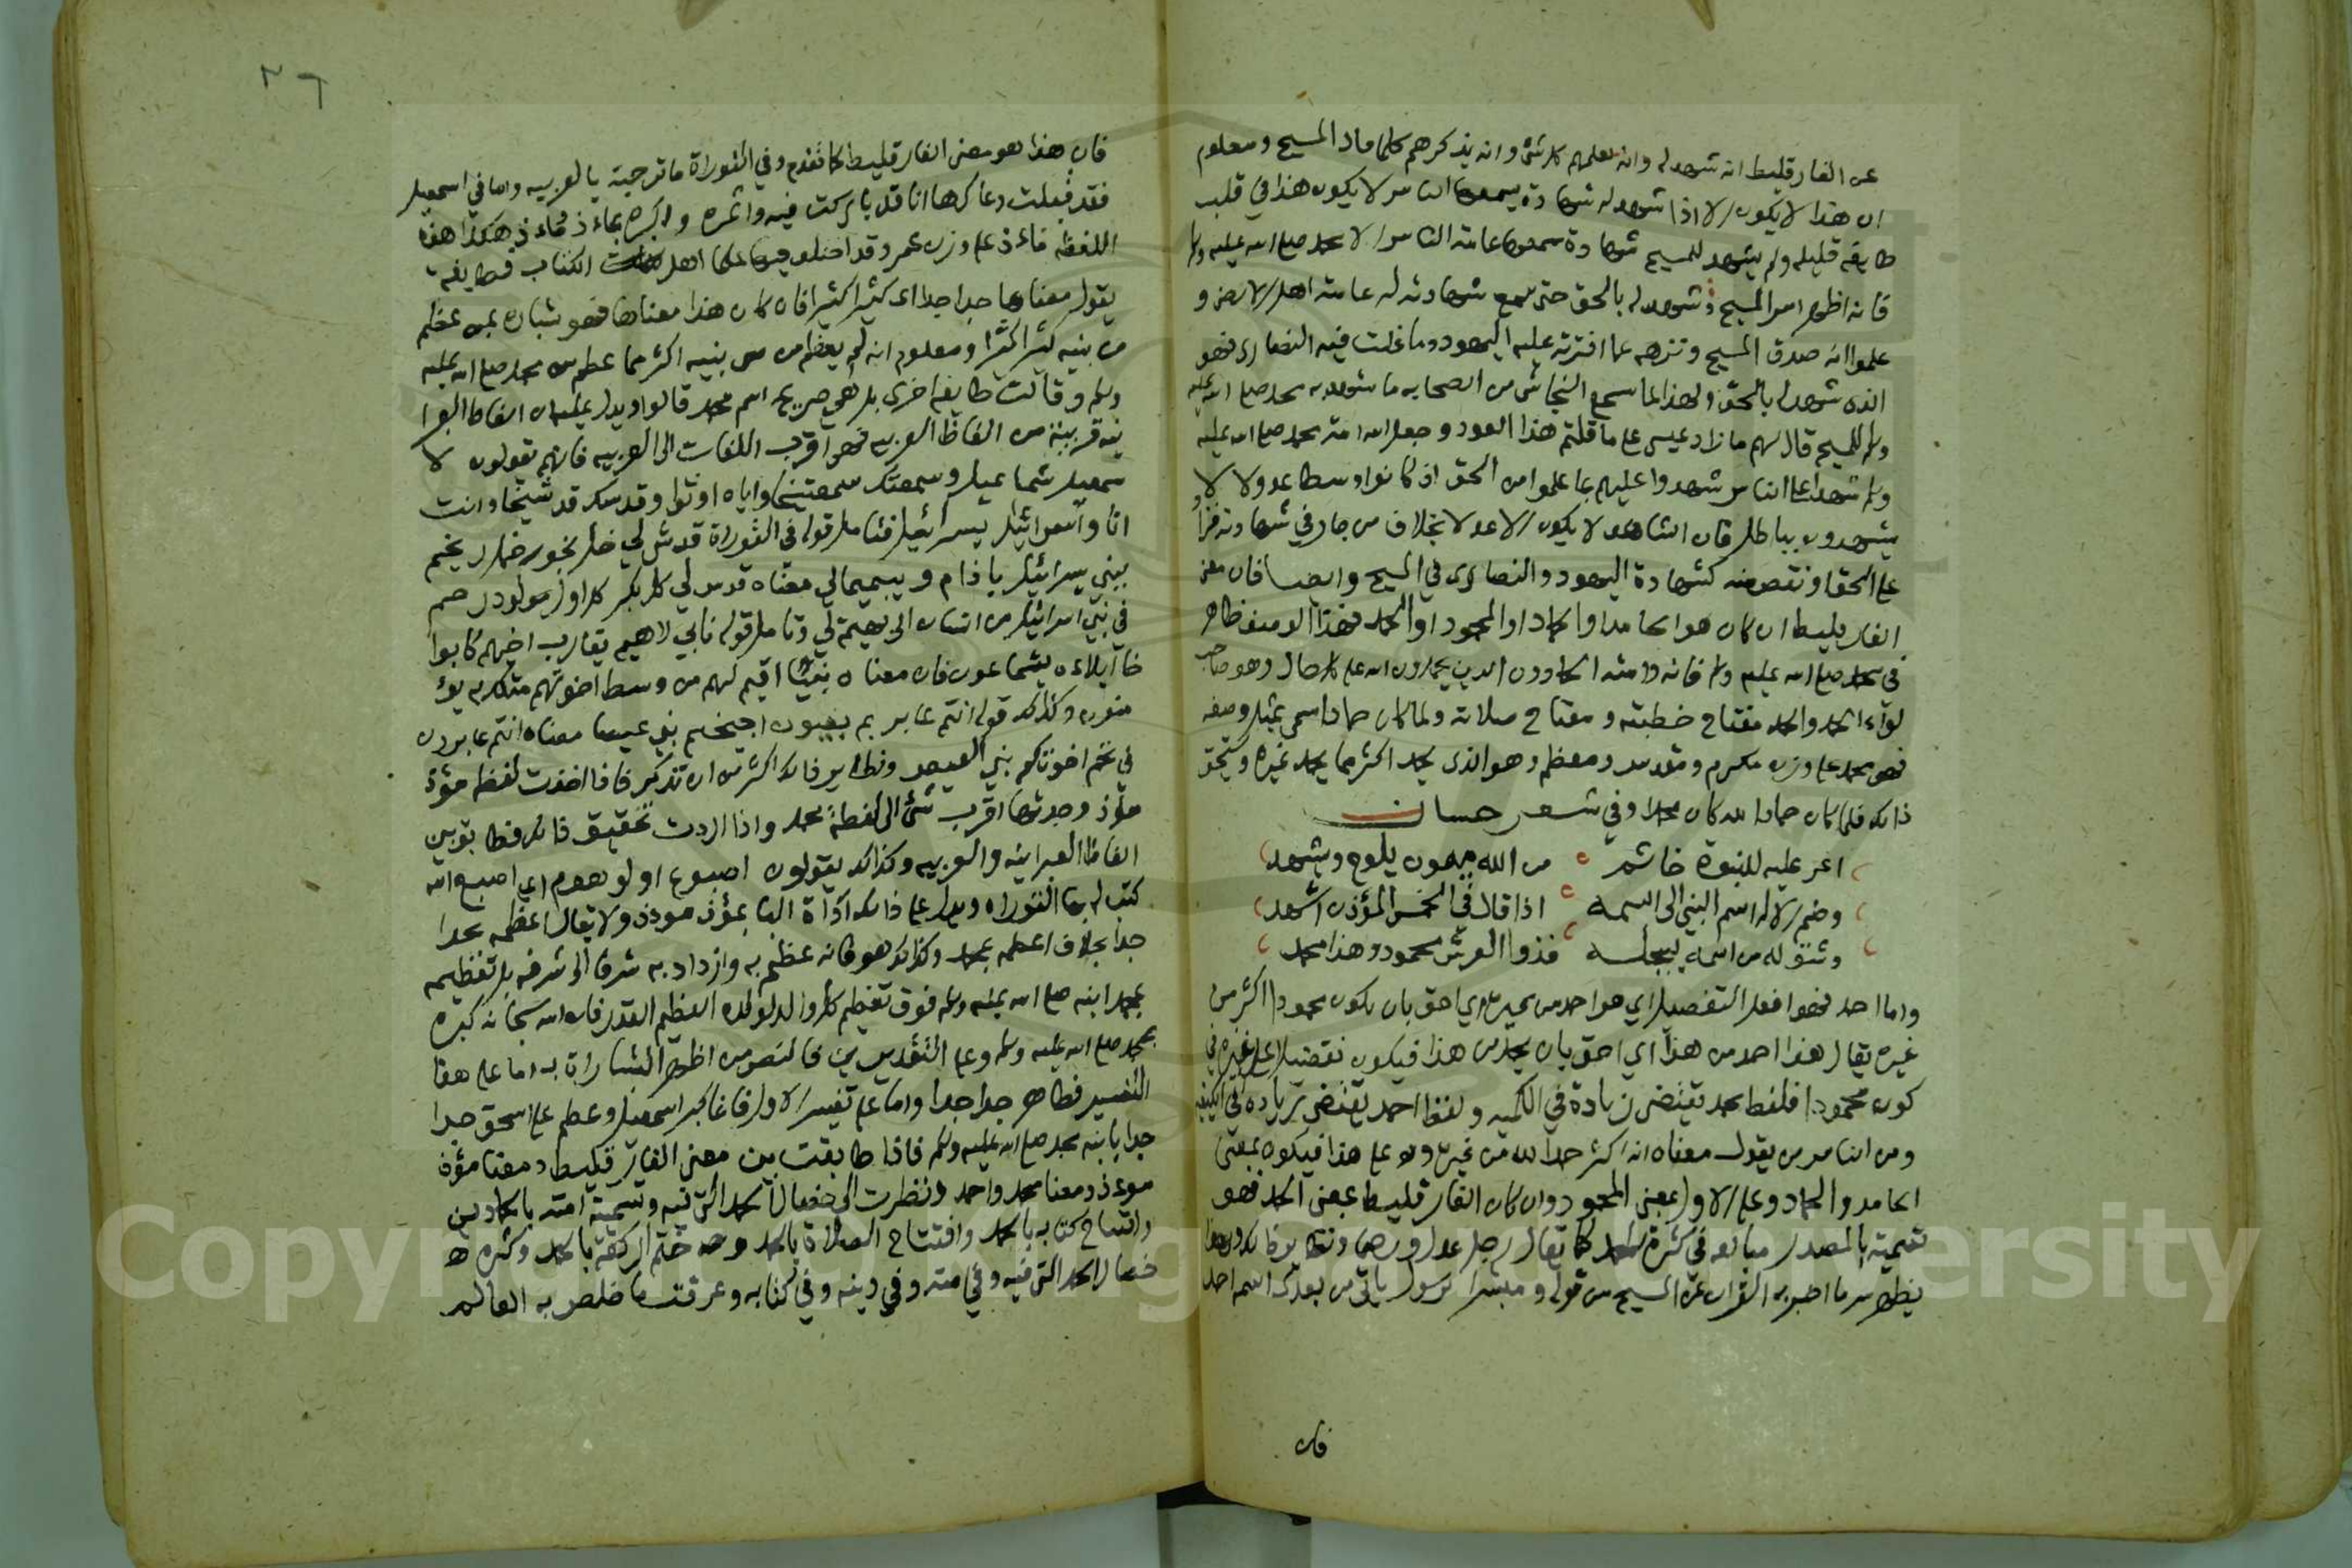 عن الفارقليط انه شهد له وانه يعلمهم كل شئ وانه يذكرهم كلما قال المسيح ومعلوم
ان هذا لا يكون الا اذا شهد له شهادة يسمعها الناس لا يكون هذا في قلب
طايفة قليله ولم يشهد للمسيح شهادة سمعها عامة الناس الا محمد صلى الله عليه وسلم
فانه اظهر امر المسيح وشهد له بالحق حتى سمع شهادته له عامة اهل الارض و
علموا انه صدق المسيح ونزهه عما افترته عليه اليهود وما غلت فيه النصارى فهو
الذي شهد له بالحق ولهذا لما سمع النجاشي من الصحابه ما شهد به محمد صلى الله عليه
وسلم للمسيح قال لهم ما زاد عيسى على ما قلتم هذا العود وجعل الله امة محمد صلى الله عليه
وسلم شهدا على الناس شهدوا عليهم بما علموا من الحق اذ كانوا وسطا عدولا لا
يشهدون بباطل فان الشاهد لا يكون الا عدلا بخلاف من جار في شهادته فزاد
على الحق او نقص منه كشهادة اليهود والنصارى في المسيح وايضا فان معنى
الفارقليط ان كان هو الحامد او الحماد او المحمود او الحمد فهذا الوصف ظاهر
في محمد صلى الله عليه وسلم فانه وامته الحمادون الذين يحمدون الله على كل حال وهو صاحب
لواء الحمد والحمد مفتاح خطبته ومفتاح صلاته ولما كان حمادا سمي بمثل وصفه
فهو محمد على وزن مكرم ومقدس ومعظم وهو الذي يحمد اكثر مما يحمد غيره ويستحق
ذلك فلما كان حمادا لله كان محمدا وفي شعر حسان
اغر عليه للنبوة خاتم من الله ميمون يلوح ويشهد
وضم الاله اسم النبي الى اسمه اذا قال في الخمس المؤذن اشهد
وشق له من اسمه ليجله فذوا العرش محمود وهذا محمد
واما احمد فهو افعل التفضيل اي هو احمد من غيره اي احق بان يكون محمودا اكثر من
غيره يقال هذا احمد من هذا اي احق بان يحمد من هذا فيكون تفضيلا على غيره في
كونه محمودا فلفظ محمد يقتضي زيادة في الكميه ولفظ احمد يقتضي زيادة في الكيفيه
ومن الناس من يقول معناه انه اكثر حمدا لله من غيره وعلى هذا فيكون بمعنى
الحامد والحماد وعلى الاول بمعنى المحمود وان كان الفارقليط بمعنى الحمد فهو
تسمية بالمصدر مبالغه في كثرة الحمد كما يقال رجل عدل ورضى ونظاير ذلك وبهذا
يظهر سر ما اخبر به القران عن المسيح من قوله ومبشرا برسول ياتي من بعدي اسمه احمد
فان
٢٦
فان هذا هو معنى الفارقليط كما تقدم وفي التوراة ما ترجمته بالعربيه واما في اسمعيل
فقد قبلت دعاك ها انا قد باركت فيه واثمره واكبره بماءذ ماءذ هكذا هذه
اللفظه ماءذ على وزن عمر وقد اختلف فيها علما اهل الكتاب فطايفة
يقول معناها جدا جدا اي كثيرا كثيرا فان كان هذا معناها فهو بشاره بمن عظم
من بنيه كثيرا كثيرا ومعلوم انه لم يعظم من بنيه اكثر مما عظم من محمد صلى الله عليه
وسلم وقالت طايفة اخرى بل هي صريح اسم محمد قالوا ويدل عليه ان الفاظ العبرا
نيه قريبة من الفاظ العربيه فهي اقرب اللغات الى العربيه فانهم يقولون لا
سمعيل شماعيل وسمعتك سمعتيخا واياه اوثوا وقدسك قد شيخا وانت
اتا واسرائيل يسرائيل فتامل قوله في التوراة قدش لي خل بخور خل ريخم
ببني يسرائيل باذام وبيميما لي معناه قدس لي كل بكر كل اول مولود رحم
في بني اسرائيل من انسان الى بهيمة لي وتامل قوله نابي لاهيم يقارب اخيهم كابوا
خا ايلاءه يشماعون فان معناه نبيا اقيم لهم من وسط اخوتهم مثلك به يؤ
منون وكذلك قوله انتم عابريم بغبول اجيخيم بني عيسا معناه انتم عابرون
في تخم اخوتكم بني العيص ونظاير ذلك اكثر من ان تذكر فاذا اخذت لفظة مؤذ
مؤذ وجدتها اقرب شئ الى لفظة محمد واذا اردت تحقيق ذلك فطابق بين
الفاظ العبرانيه والعربيه وكذلك يقولون اصبوع اولوهيم اي اصبع الله
كتب له بها التوراه ويدل على ذلك اداة البا بمؤذ مؤذ ولا يقال اعظمه بجدا
جدا بخلاف اعظمه بمحمد وكذلك هو فانه عظم به وازداد به شرفا الى شرفه بل تعظيمه
بمحمد ابنه صلى الله عليه وسلم فوق تعظيم كل والد لولده العظيم القدر فان الله سبحانه كبره
بمحمد صلى الله عليه وسلم وعلى التقديرين فالنص من اظهر البشارات به اما على هذا
التفسير فظاهر جدا جدا واما على تفسير الاول فانما كبر اسمعيل وعظم على اسحق جدا
جدا بابنه محمد صلى الله عليه وسلم فاذا طابقت بين معنى الفارقليط ومعنا مؤذ
موءذ ومعنا محمد واحمد ونظرت الى خصال الحمد التي فيه وتسمية امته بالحمادين
وافتتاح كتابه بالحمد وافتتاح الصلاة بالحمد وختم الركعة بالحمد وكثره
خصال الحمد التي فيه وفي امته وفي دينه وفي كتابه وعرفت ما خلص به العالم